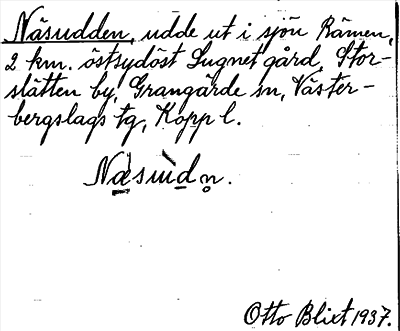 Näsudden, udde ut i sjön Rämen,
2 km. östsydöst Lugnet gård, Stor-
slätten by, Grangärde sn, Väster-
bergslags tg, Kopp l.
Næ̀sùdn̥.
Otto Blixt 1937.